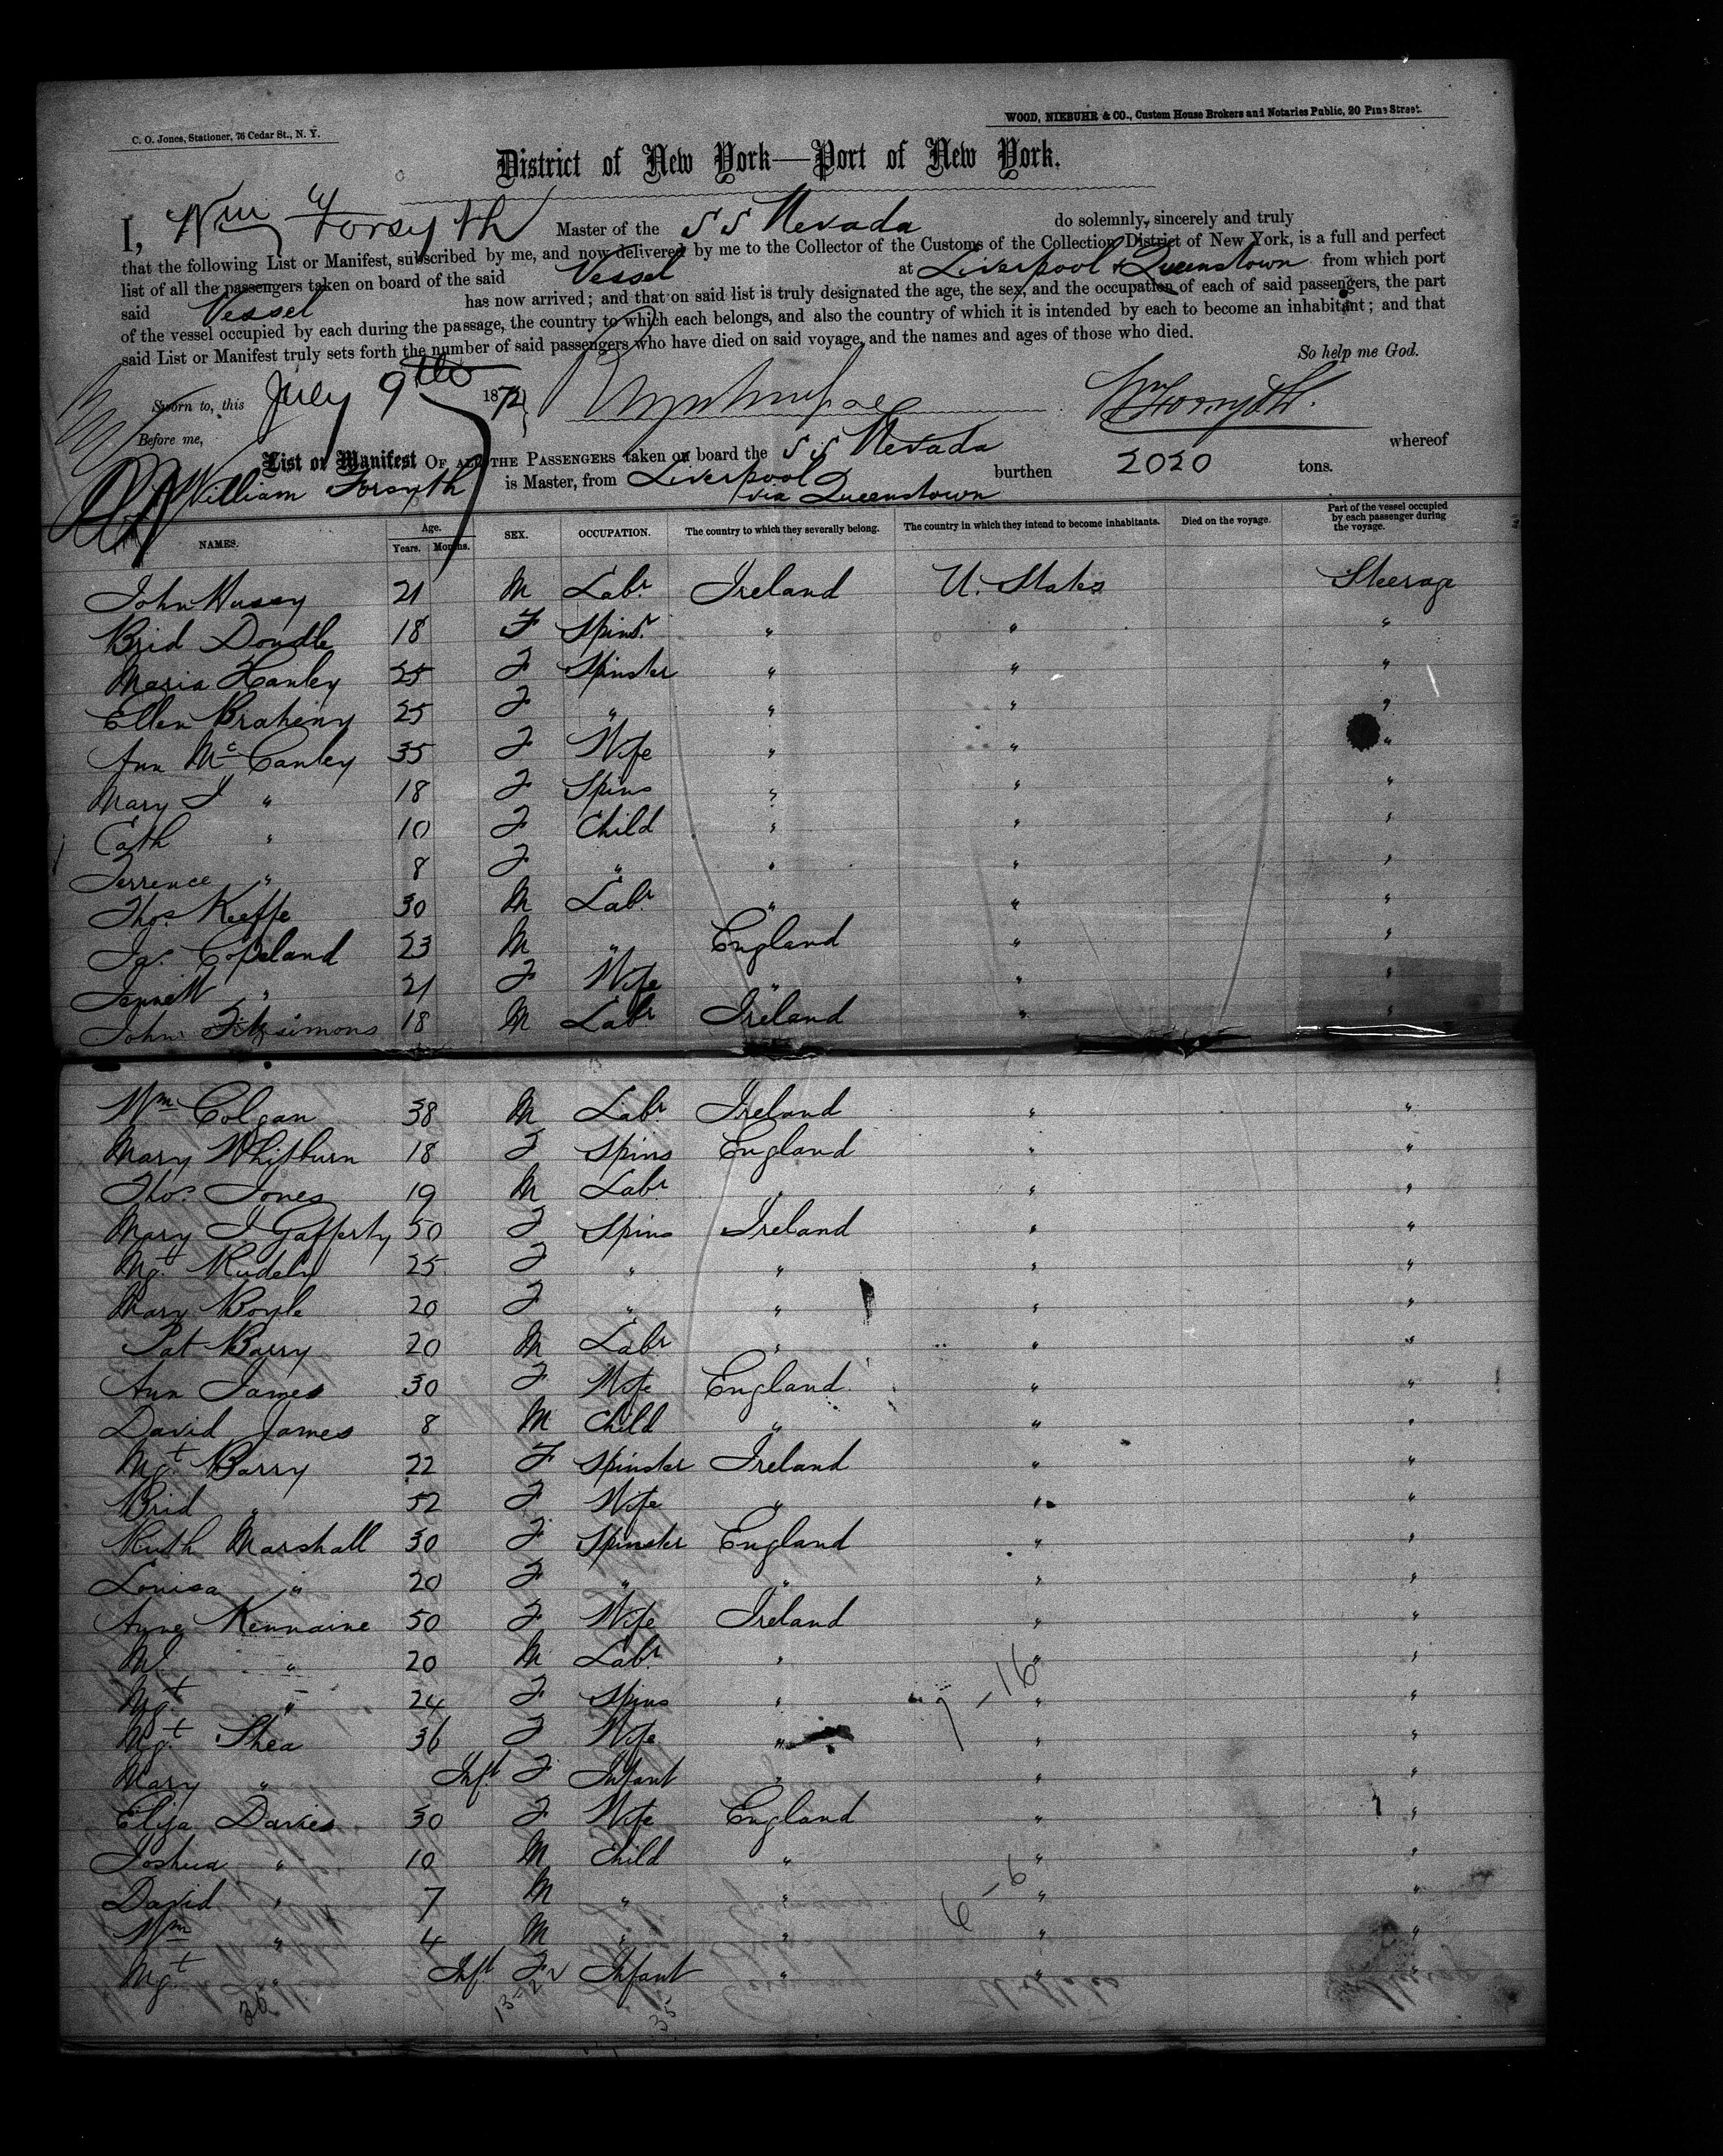 C. O. Jones, Stationer, 76 Cedar St., N. Y.
WOOD, NIEBUHR & CO., Custom House Brokers and Notaries Public, 20 Pine Street.
District of New York—Port of New York.
I, Wm Forsyth Master of the S S Nevada do solemnly, sincerely and truly
that the following List or Manifest, subscribed by me, and now delivered by me to the Collector of the Customs of the Collection District of New York, is a full and perfect
list of all the passengers taken on board of the said Vessel at Liverpool & Queenstown from which port
said Vessel has now arrived; and that on said list is truly designated the age, the sex, and the occupation of each of said passengers, the part
of the vessel occupied by each during the passage, the country to which each belongs, and also the country of which it is intended by each to become an inhabitant; and that
said List or Manifest truly sets forth the number of said passengers who have died on said voyage, and the names and ages of those who died.
So help me God.
Sworn to, this July 9th 1872 Wm Forsyth.
Before me,
List or Manifest OF ALL THE PASSENGERS taken on board the S S Nevada whereof
William Forsyth is Master, from Liverpool via Queenstown burthen 2020 tons.
NAMES. Age. Years. Months. SEX. OCCUPATION. The country to which they severally belong. The country in which they intend to become inhabitants. Died on the voyage. Part of the vessel occupied by each passenger during the voyage.
John Husey 21 M Labr Ireland U. States Steerage
Brid Doudle 18 F Spinsr " " "
Maria Hanley 25 F Spinster " " "
Ellen Braheny 25 F " " " "
Ann McCanley 35 F Wife " " "
Mary J " 18 F Spins " " "
Cath " 10 F Child " " "
Terrence " 8 F " " " "
Thos Keeffe 30 M Labr " " "
Jas. Copeland 23 M " England " "
Jennett " 21 F Wife " " "
John Fitzsimons 18 M Labr Ireland " "
Wm Colgan 38 M Labr Ireland " "
Mary Whitburn 18 F Spins England " "
Thos. Jones 19 M Labr " " "
Mary J. Gafferty 50 F Spins Ireland " "
Mgt 25 F " " " "
Mary Boyle 20 F " " " "
Pat Barry 20 M Labr " " "
Ann James 30 F Wife England " "
David James 8 M Child " " "
Mgt Barry 22 F Spinster Ireland " "
Brid " 52 F Wife " " "
Ruth Marshall 30 F Spinster England " "
Louisa " 20 F " " " "
Anne Kennaine 50 F Wife Ireland " "
Ml " 20 M Labr " " "
Mgt " 24 F Spins " " "
Mgt Shea 36 F Wife " " "
Mary " Inft F Infant " " "
Eliza Davies 30 F Wife England " "
Joshua " 10 M Child " " "
David " 7 M " " " "
Wm " 4 M " " " "
Mgt " Inft F Infant " " "
35